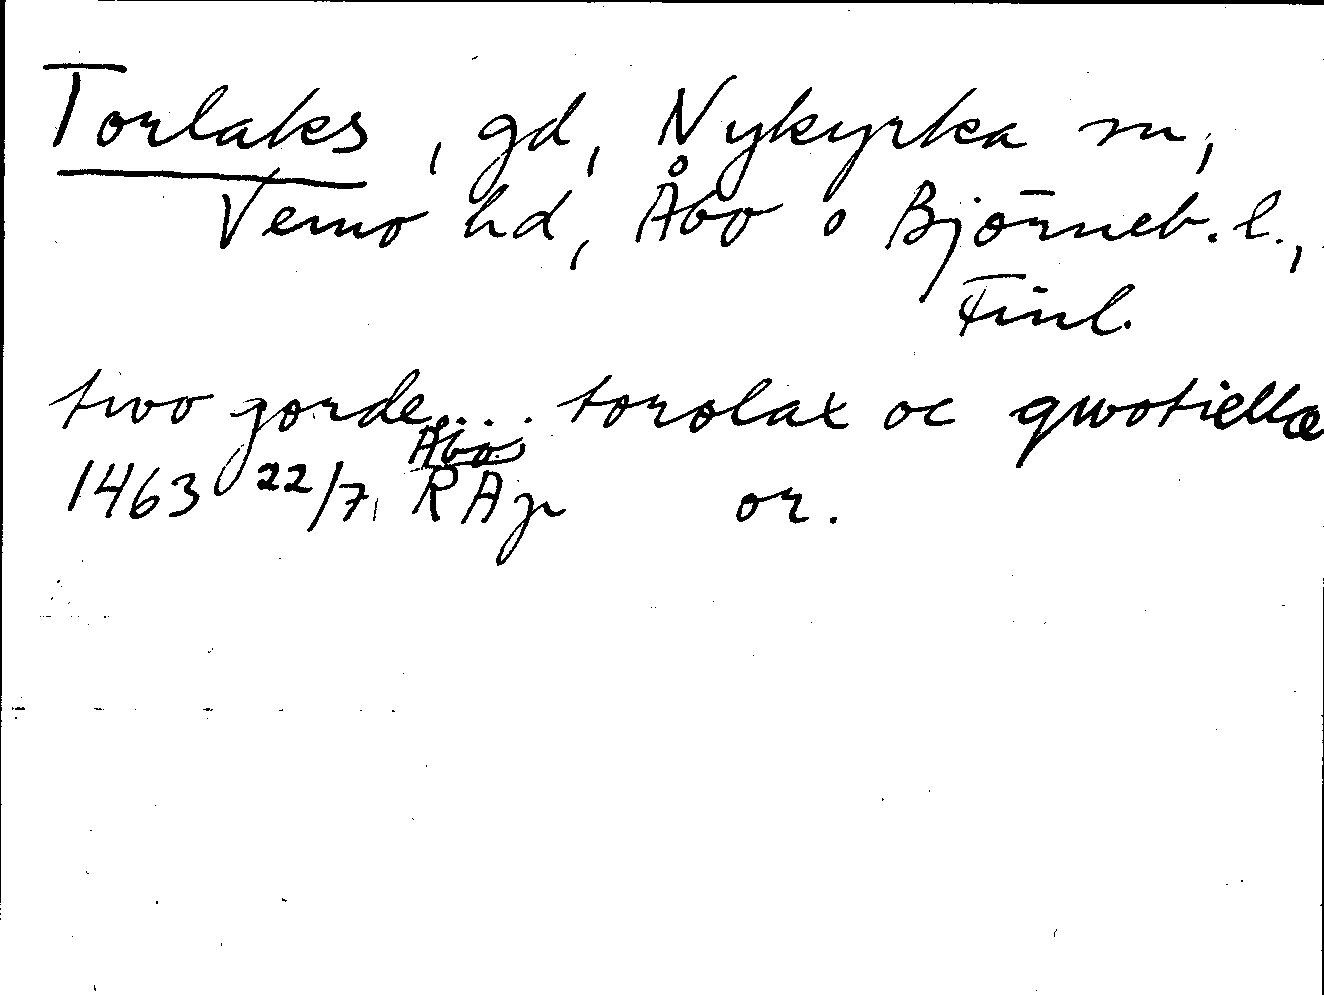 Torlaks, gd, Nykyrka sn,
Vemo hd, Åbo o Björneb. l.,
Finl.
two gorde.... torolax oc qwotiellæ
Åbo
1463 22/7, RAp or.